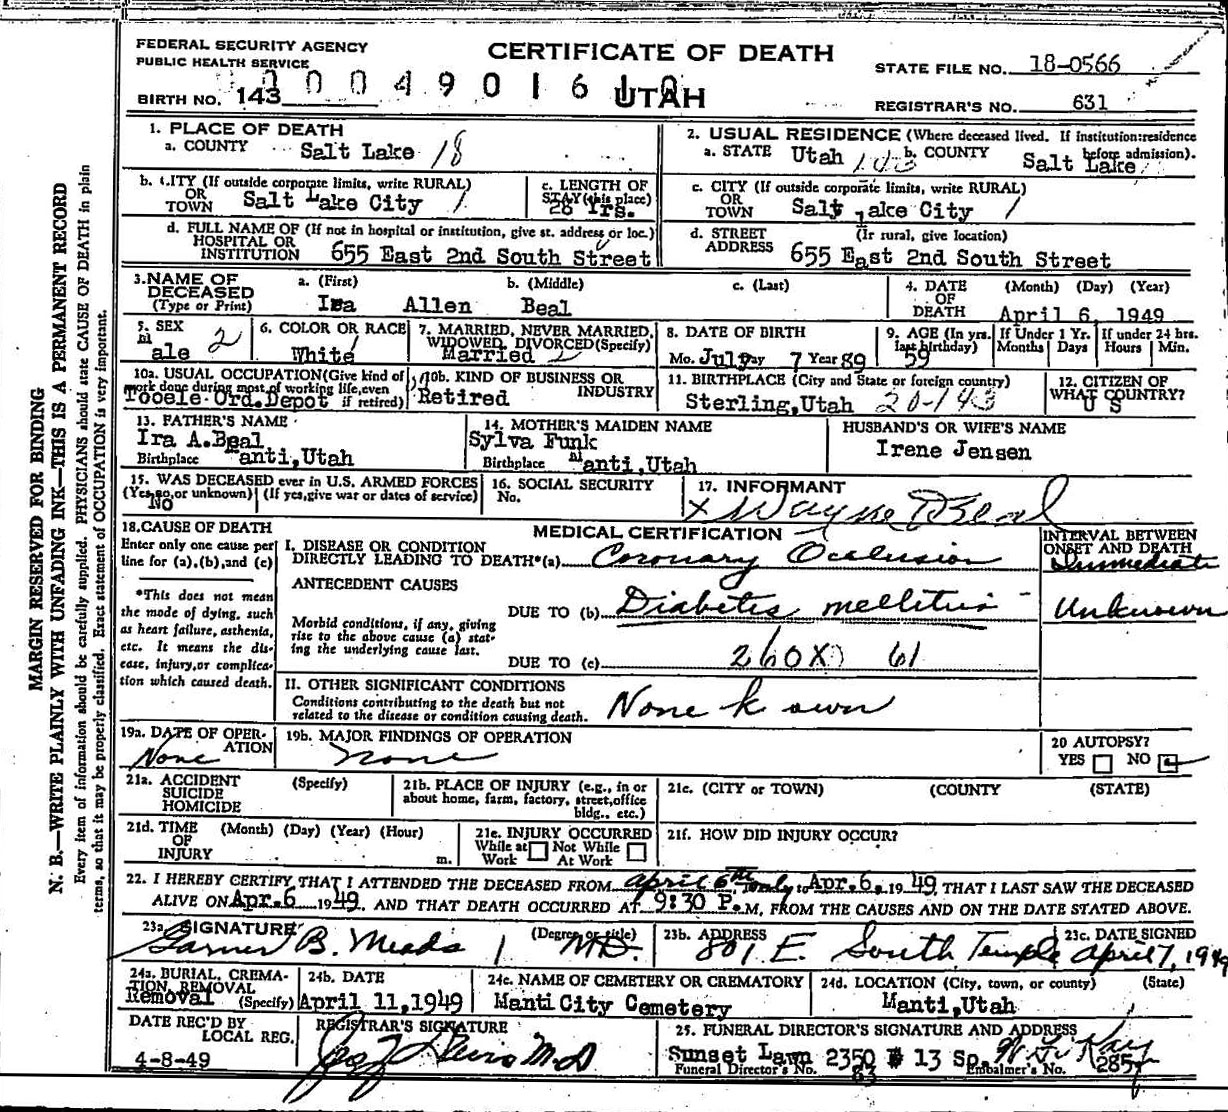 FEDERAL SECURITY AGENCY
PUBLIC HEALTH SERVICE
CERTIFICATE OF DEATH
STATE FILE NO. 18-0566
BIRTH NO. 143
UTAH
REGISTRAR'S NO. 631
1. PLACE OF DEATH
a. COUNTY Salt Lake 18
2. USUAL RESIDENCE (Where deceased lived. If institution:residence before admission).
a. STATE Utah b. COUNTY Salt Lake
b. CITY (If outside corporate limits, write RURAL) OR TOWN Salt Lake City 1
c. LENGTH OF STAY (this place) 28 Yrs.
c. CITY (If outside corporate limits, write RURAL) OR TOWN Salt Lake City 1
d. FULL NAME OF (If not in hospital or institution, give st. address or loc.) HOSPITAL OR INSTITUTION 655 East 2nd South Street
d. STREET ADDRESS (If rural, give location) 655 East 2nd South Street
3. NAME OF DECEASED (Type or Print)
a. (First) b. (Middle) c. (Last)
Ira Allen Beal
4. DATE OF DEATH (Month) (Day) (Year)
April 6, 1949
5. SEX Male 2
6. COLOR OR RACE White
7. MARRIED, NEVER MARRIED, WIDOWED, DIVORCED (Specify) Married 2
8. DATE OF BIRTH Mo. July Day 7 Year 89
9. AGE (In yrs. last birthday) 59
If Under 1 Yr. Months Days
If under 24 hrs. Hours Min.
10a. USUAL OCCUPATION (Give kind of work done during most of working life, even if retired) Tooele Ord. Depot
10b. KIND OF BUSINESS OR INDUSTRY Retired
11. BIRTHPLACE (City and State or foreign country) Sterling, Utah 20-143
12. CITIZEN OF WHAT COUNTRY? U S
13. FATHER'S NAME
Ira A. Beal
Birthplace Manti, Utah
14. MOTHER'S MAIDEN NAME
Sylva Funk
Birthplace Manti, Utah
HUSBAND'S OR WIFE'S NAME
Irene Jensen
15. WAS DECEASED ever in U.S. ARMED FORCES
(Yes, no, or unknown) (If yes, give war or dates of service)
No
16. SOCIAL SECURITY No.
17. INFORMANT
x Wayne Beal
18. CAUSE OF DEATH
Enter only one cause per line for (a), (b), and (c)
*This does not mean the mode of dying, such as heart failure, asthenia, etc. It means the disease, injury, or complication which caused death.
MEDICAL CERTIFICATION
INTERVAL BETWEEN ONSET AND DEATH
I. DISEASE OR CONDITION DIRECTLY LEADING TO DEATH*(a) Coronary Occlusion
Immediate
ANTECEDENT CAUSES
DUE TO (b) Diabetis mellitus
Unknown
Morbid conditions, if any, giving rise to the above cause (a) stating the underlying cause last.
DUE TO (c) 260X 61
II. OTHER SIGNIFICANT CONDITIONS
Conditions contributing to the death but not related to the disease or condition causing death.
None k own
19a. DATE OF OPERATION None
19b. MAJOR FINDINGS OF OPERATION
None
20 AUTOPSY?
YES NO
21a. ACCIDENT SUICIDE HOMICIDE (Specify)
21b. PLACE OF INJURY (e.g., in or about home, farm, factory, street, office bldg., etc.)
21c. (CITY or TOWN) (COUNTY (STATE)
21d. TIME OF INJURY (Month) (Day) (Year) (Hour) m.
21e. INJURY OCCURRED
While at Work Not While At Work
21f. HOW DID INJURY OCCUR?
22. I HEREBY CERTIFY THAT I ATTENDED THE DECEASED FROM April 6th, only to Apr. 6, 1949 THAT I LAST SAW THE DECEASED
ALIVE ON Apr. 6 1949. AND THAT DEATH OCCURRED AT 9:30 P. M, FROM THE CAUSES AND ON THE DATE STATED ABOVE.
23a. SIGNATURE (Degree or title)
Garner B. Meads MD.
23b. ADDRESS
801 E. South Temple
23c. DATE SIGNED
April 7, 1949
24a. BURIAL, CREMATION, REMOVAL (Specify) Removal
24b. DATE
April 11, 1949
24c. NAME OF CEMETERY OR CREMATORY
Manti City Cemetery
24d. LOCATION (City, town, or county) (State)
Manti, Utah
DATE REC'D BY LOCAL REG.
4-8-49
REGISTRAR'S SIGNATURE
M.D
25. FUNERAL DIRECTOR'S SIGNATURE AND ADDRESS
Sunset Lawn 2350 13
Funeral Director's No. 63
Embalmer's No. 285
MARGIN RESERVED FOR BINDING
N. B.—WRITE PLAINLY WITH UNFADING INK—THIS IS A PERMANENT RECORD
Every item of information should be carefully supplied. PHYSICIANS should state CAUSE OF DEATH in plain
terms, so that it may be properly classified. Exact statement of OCCUPATION is very important.